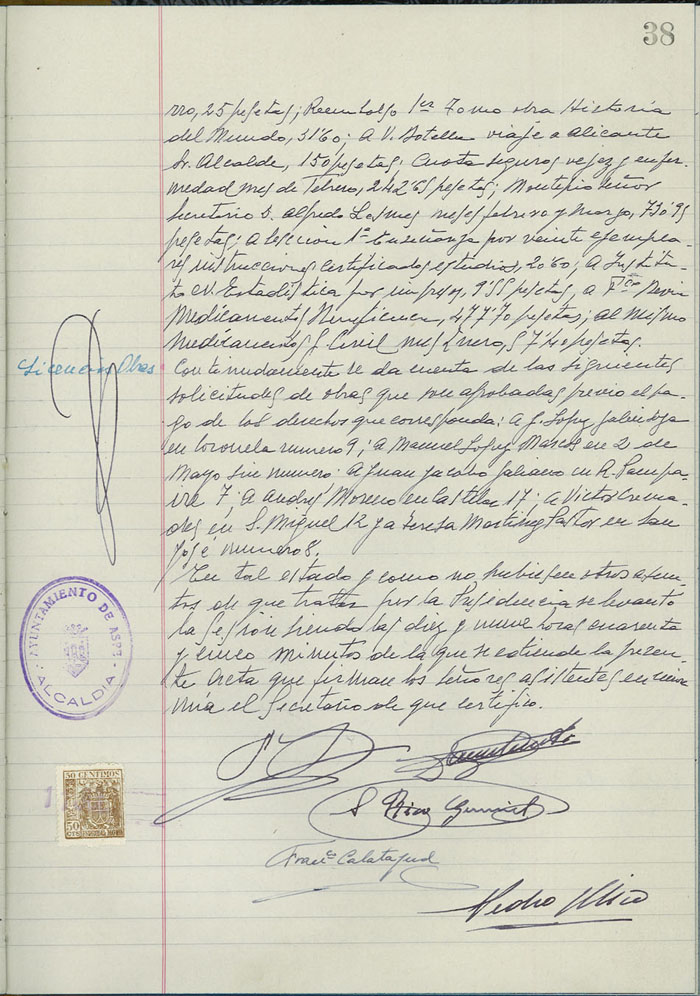 38
rro, 25 pesetas; Reembolso 1er Tomo obra Historia
del Mundo, 31'60; A V. Botella viaje a Alicante
Sr. Alcalde, 150 pesetas; Cuota seguros vejez y enfer-
medad mes de Febrero, 242'65 pesetas; Montepio señor
Secretario D. Alfredo meses febrero y marzo, 730'95
pesetas; a Seccion 1ª Enseñanza por veinte ejempla-
res instrucciones certificados estudios, 20'60; a Institu-
to N. Estadistica por impresos, 9'55 pesetas, a
Medicamentos Beneficencia, 477'70 pesetas; al mismo
medicamentos G. Civil mes Enero, 57'40 pesetas.
Licencias Obras
Continuadamente se da cuenta de las siguientes
solicitudes de obras que son aprobadas previo el pa-
go de los derechos que corresponda: a J. Lopez
en Coronela numero 9; a Manuel Lopez en 2 de
Mayo sin numero; a Juan Jacobo en R.
7; a Andres Moreno en Castelar 17; a Victor Crema-
des en S. Miguel 12 y a Teresa Martinez Pastor en San
José numero 8.
En tal estado y como no hubiesen otros asun-
tos de que tratar por la Presidencia se levantó
la sesión siendo las diez y nueve horas cuarenta
y cinco minutos de la que se extiende la presen-
te acta que firman los señores asistentes
el Secretario de que certifico.
AYUNTAMIENTO DE ASPE
ALCALDIA
50 CENTIMOS
50 CTS
S Rico
Franco Calatayud
Pedro Rico